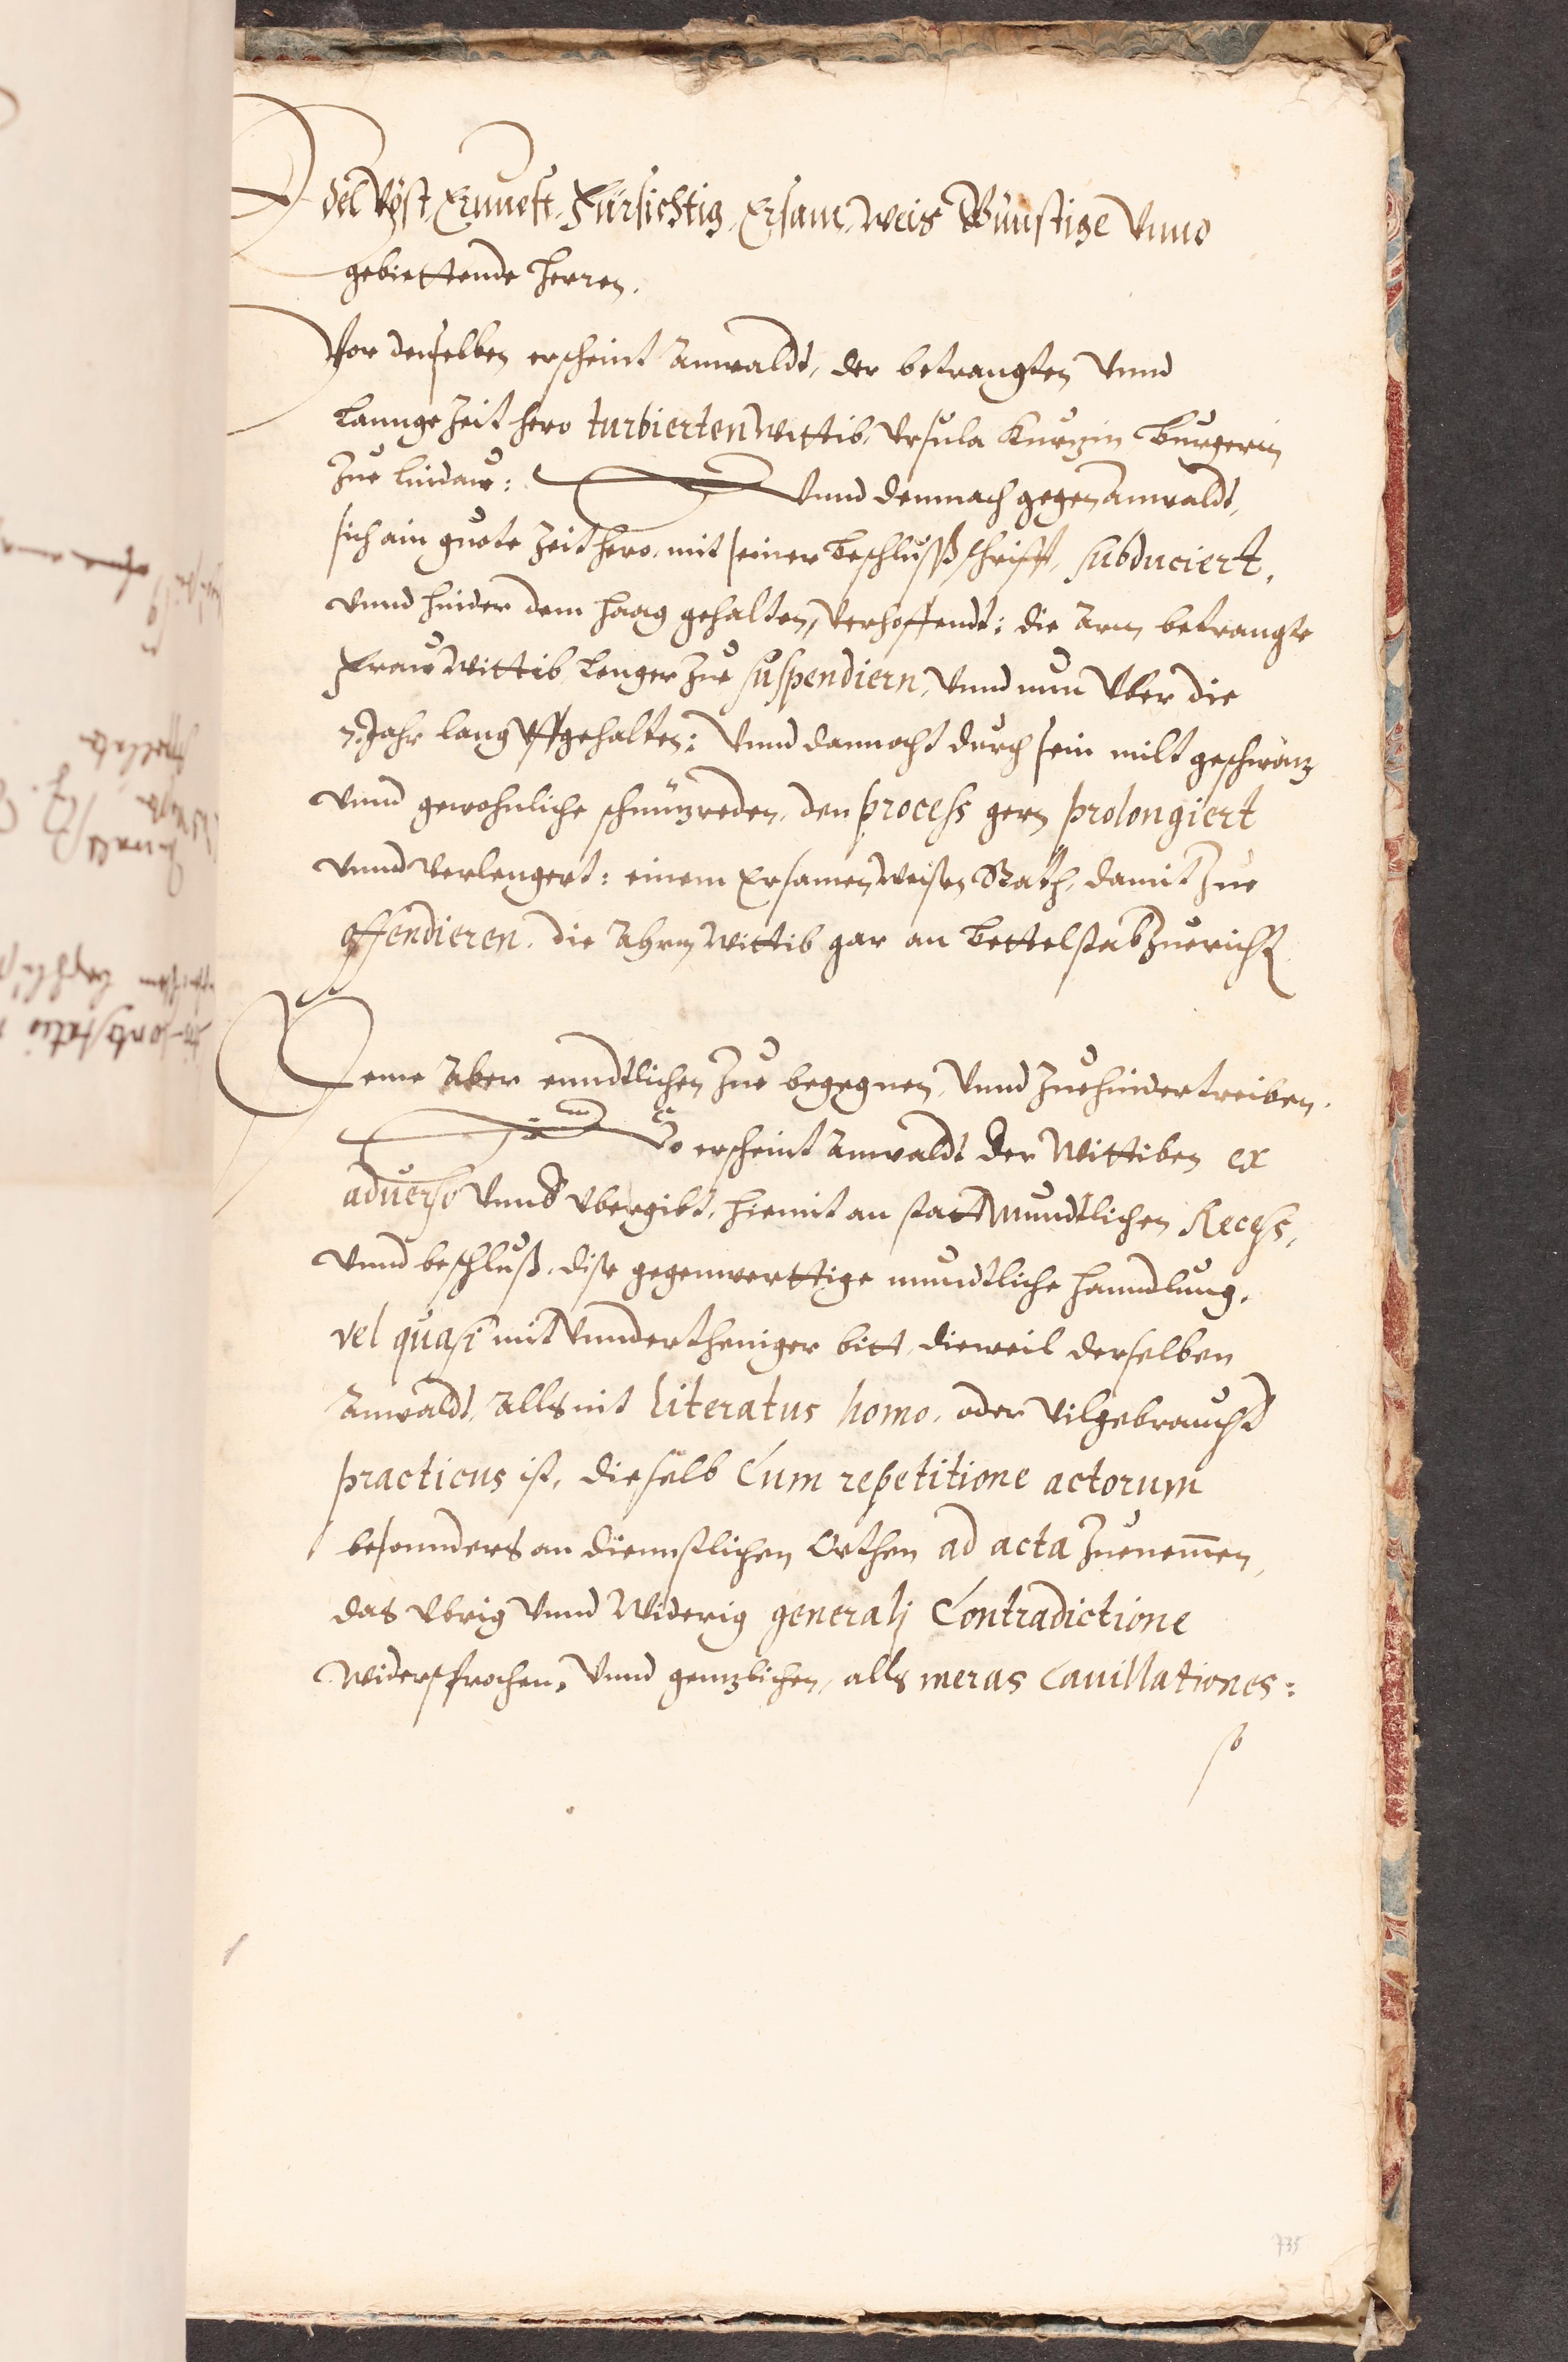 Edel Vöst, Ernuest, Fürsichtig, Ersam, Weis Günstige Vnnd
gebiettende Herren.
Vor denselben erscheint Anwaldt, der betrangten Vnnd
Lannge Zeit hero turbierten Wittib, Vrsula Kurzin Burgerin
Zue Lindaw: Vnnd demnach gegen Anwaldt,
sich ain guote Zeit hero, mit seiner beschlusßschrifft, subduciert,
vnnd hinder dem Haag gehalten, Verhoffendt: die Arm betrangte
Fraw Wittib Lenger Zue suspendiern, Vnnd nun Vber die
7. Jahr lang vffgehalten: Vnnd dannocht durch sein milt geschwäz
vnnd gewohnliche schmüzreden, den process gern prolongiert
vnnd verlengert: einem Ersamen Weisen Rath, damit Zue
offendieren, die Ahrm Wittib gar an Bettelstab Zuericht
Deme Aber enndtlichen Zue begegnen, Vnnd Zuehindertreiben.
So erscheint Anwaldt der Wittiben ex
aduerso Vnnd Vbergibt, hiemit an statt Mundtlichen Recess,
Vnnd beschluß, dise gegenwerttige mundtliche Hanndlung,
vel quasi mit Vnndertheniger bitt, dieweil derselben
Anwaldt, Alls nit literatus homo, oder Vilgebraucht
practicus ist, dieselb Cum repetitione actorum
besonnders an diennstlichen Orthen ad acta Zuenemmen,
das Vbrig Vnnd Widerig generalj Contradictione
Widersprochen, Vnnd gennzlichen, alls meras Cauillationes:
so
735